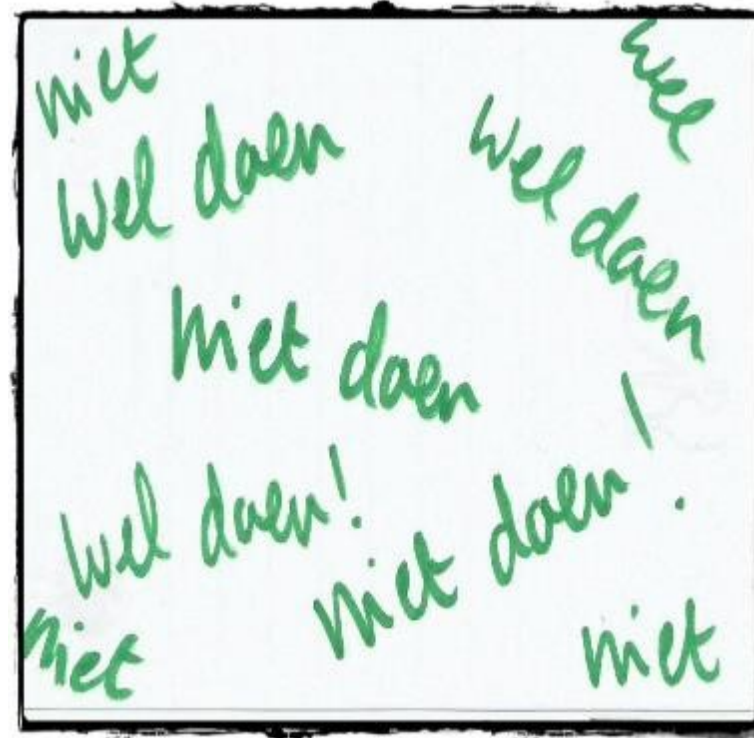 niet
wel
wel doen
wel doen
niet doen
wel doen!
niet doen!
niet
niet